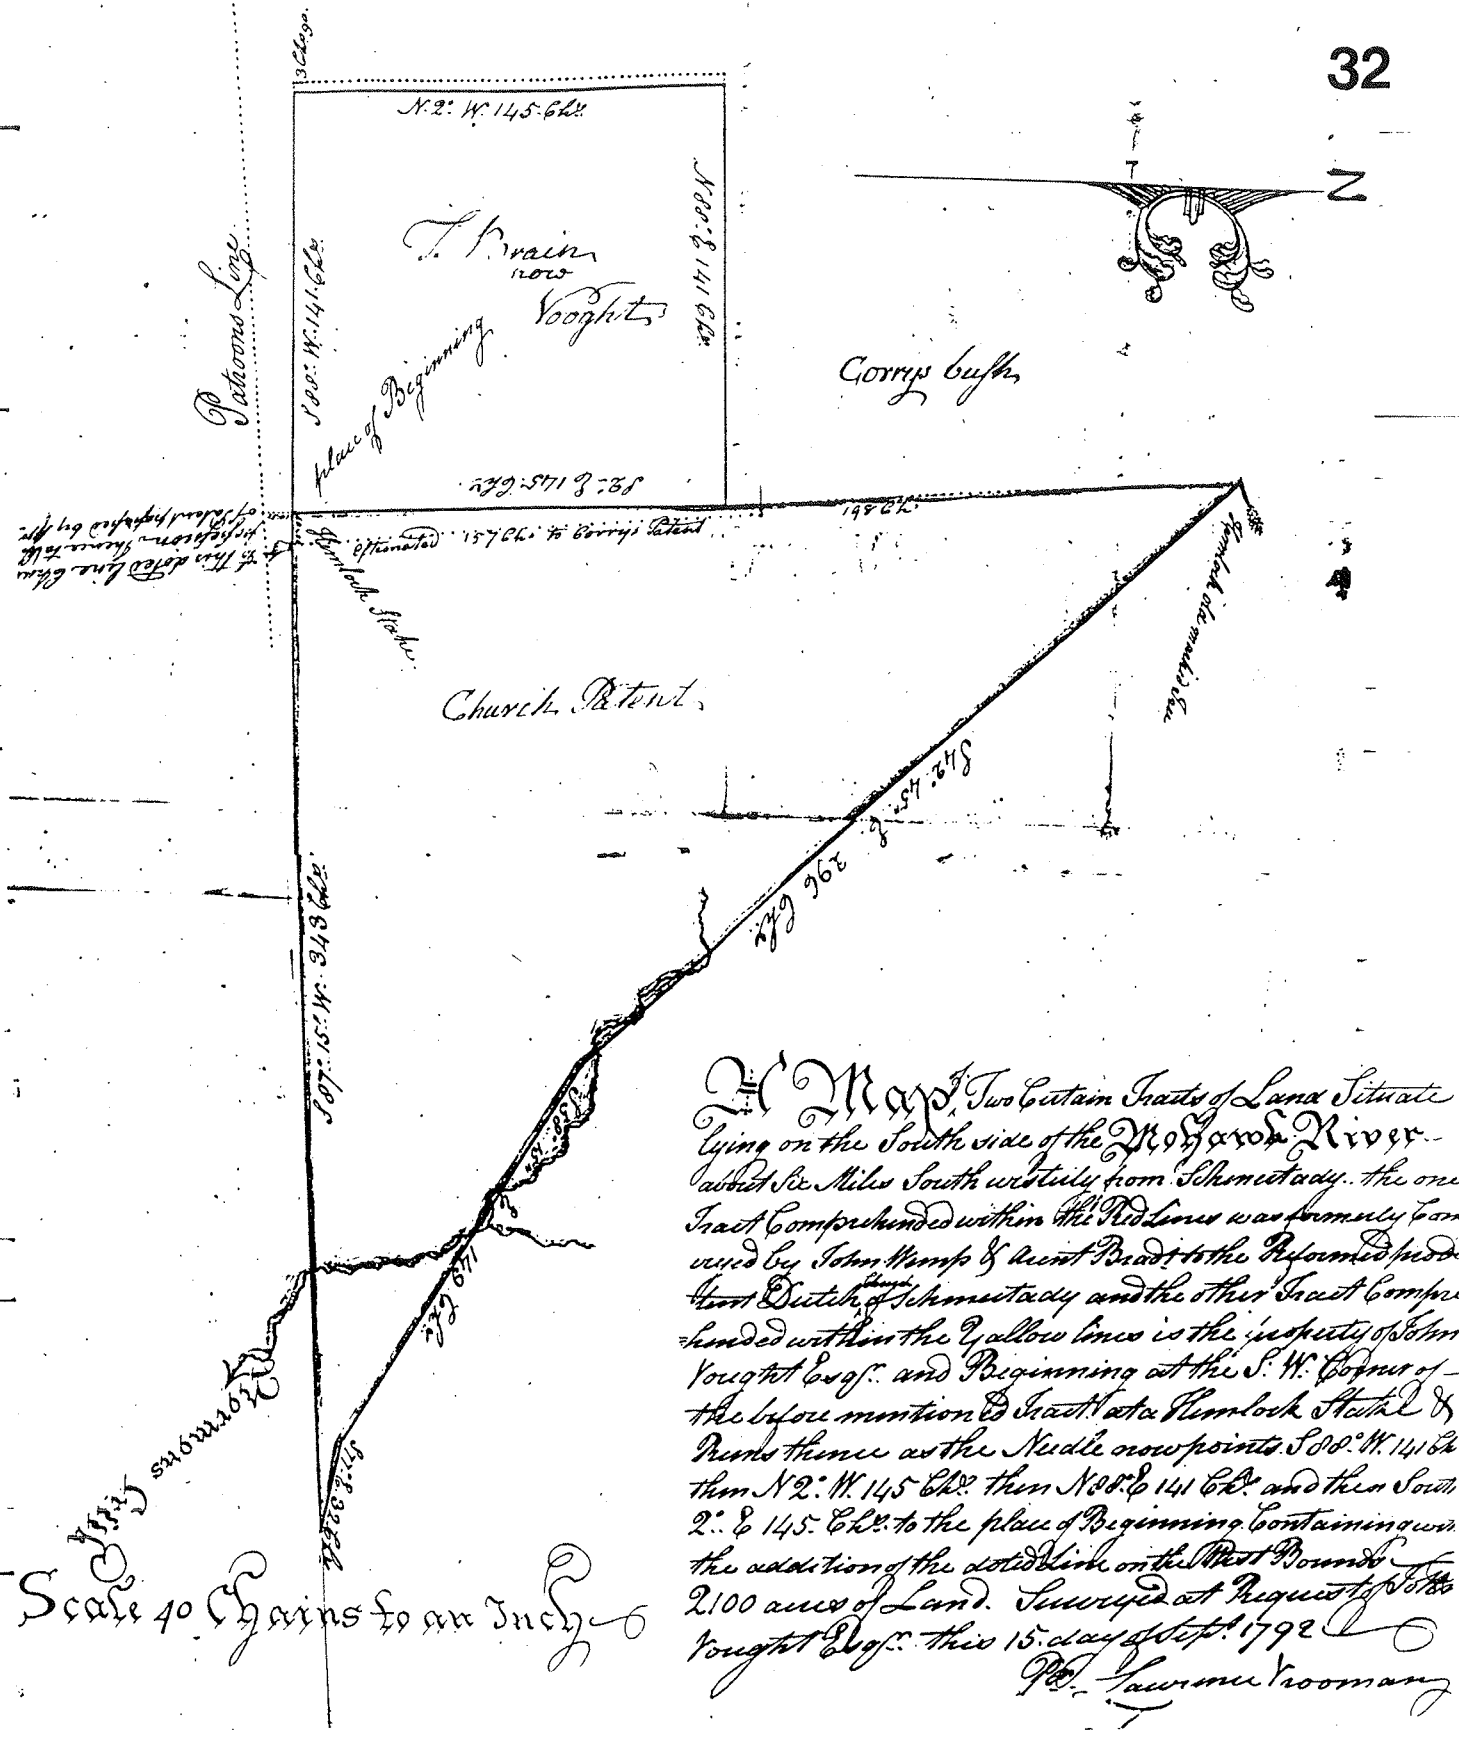 32
3 Chs 90.
N. 2°. W. 145. Chs.
N 88° E 141 Chs.
N
T. Brain
now
Vooght
Patroons Line
S 88°. W. 141. Chs.
place of Beginning
Corrys bush
S 2°. E 145. Chs
198 Chs.
Estimated 157 Chs. to Corrys Patent
to this doted line Chn
possession thence to the
of Toland possessed by
Hemlock Stake.
Hemlock old marked tree
Church Patent
S 42°. 45". E. 296 Chs.
S 87°. 15". W. 343 Chs.
149 Chs.
S 17. E. 32 Ch
Normans Kill
Scale 40 Chains to an Inch
A Map of Two Certain Tracts of Land Situate
lying on the South side of the Mohawk River
about Six Miles South westerly from Schenectady. the one
Tract Comprehended within the Red Lines was formerly Con
veyed by John Wemp & Arent Bradt to the Reformed prode
stent Dutch Church of Schenectady and the other Tract Compre
=hended within the Yallow lines is the property of John
Vought Esqr. and Beginning at the S: W. Corner of
the before mentioned Tract at a Hemlock Stake &
Runs thence as the Needle now points. S 88°. W. 141 Ch
then N 2°. W. 145 Chs. then N 88°. E 141 Chs. and then South
2°. E 145. Chs. to the place of Beginning Containing
the addition of the doted Line on the West Bounds
2100 acres of Land. Surveyed at Request of John
Vought Esqr. this 15. day of Sept. 1792
Pr. Lawrence Vrooman